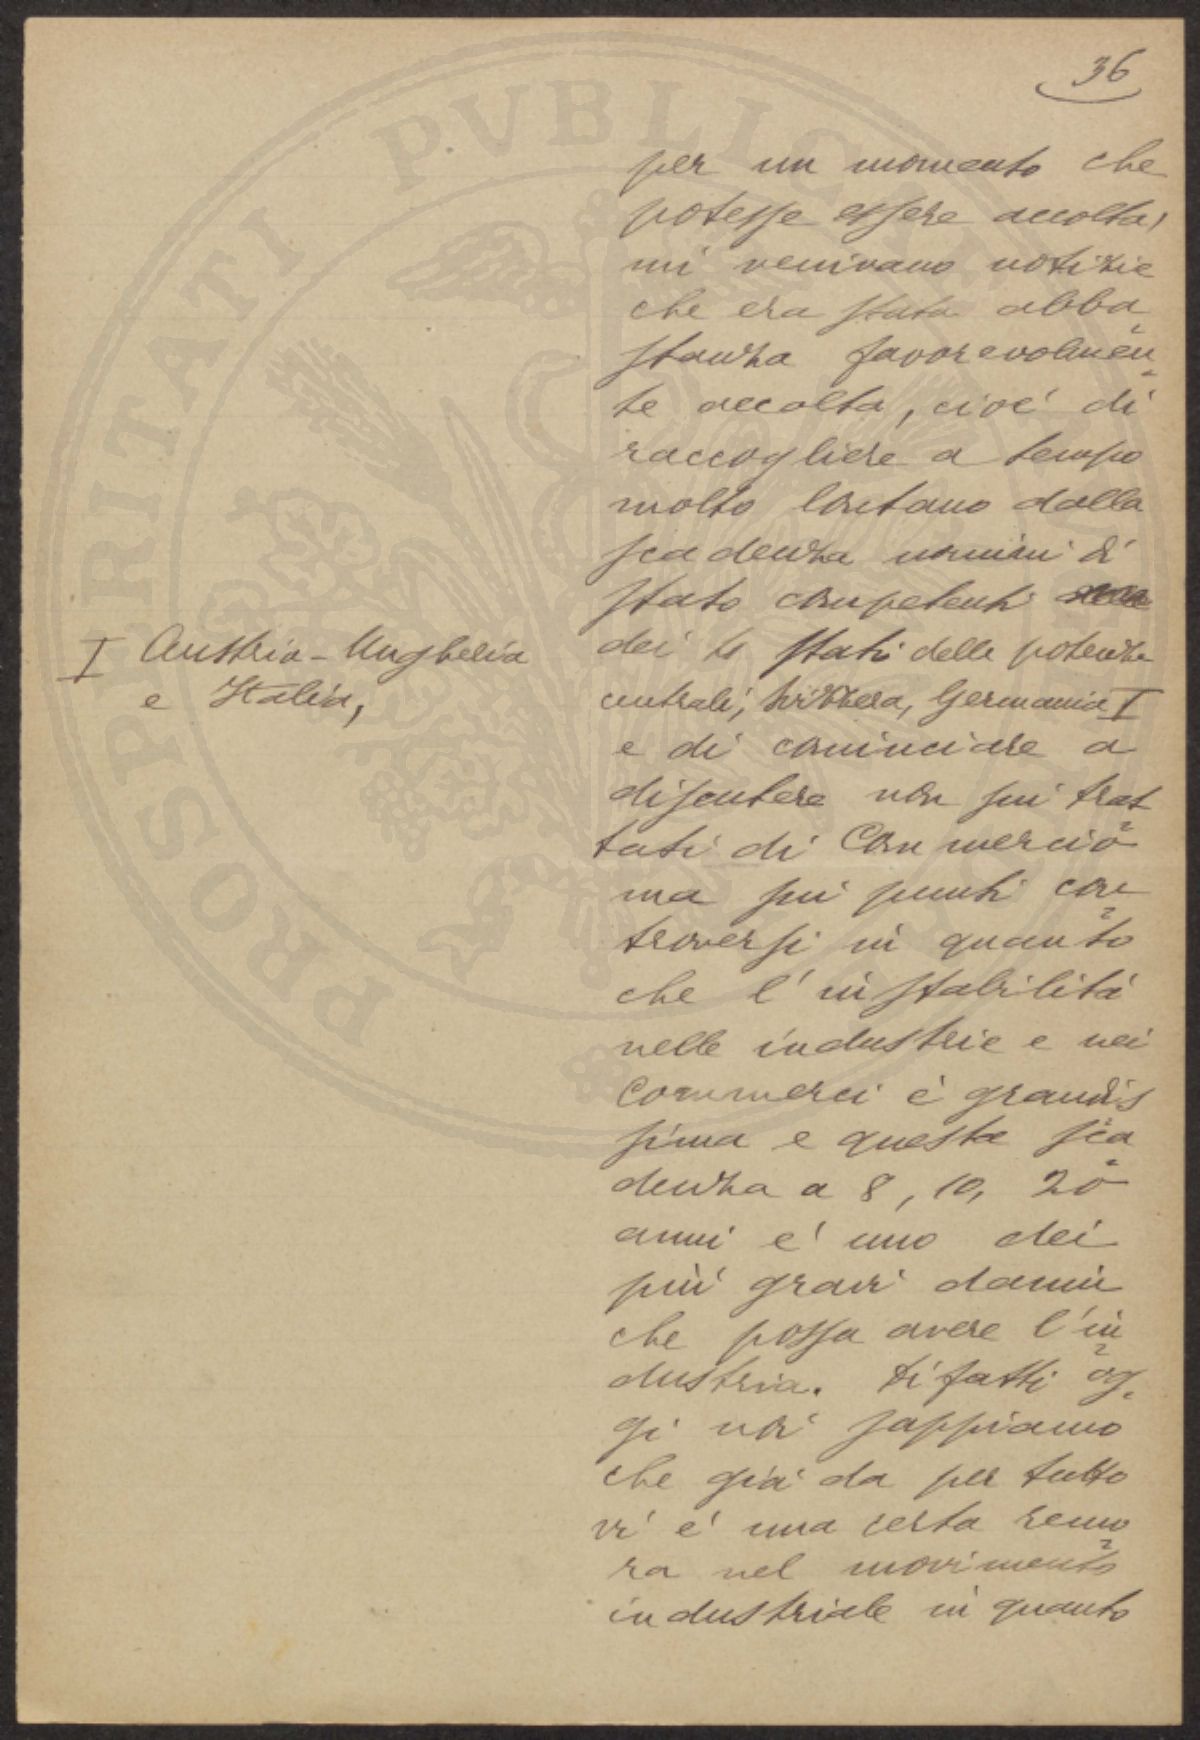 36
per un momento che
potesse essere accolta,
mi venivano notizie
che era stata abba
stanza favorevolmen
te accolta, cioé di
raccogliere a tempo
molto lontano dalla
scadenza uomini di
Stato competenti
dei Stati delle potenze
centrali; Svizzera, Germania I
I Austria-Ungheria
e Italia,
e di cominciare a
discutere non sui trat
tati di Commercio
ma sui punti con
troversi in quanto
che l'instabilitá
nelle industrie e nei
Commerci é grandis
sima e questa sca
denza a 8, 10, 20
anni e' uno dei
piú gravi danni
che possa avere l'in
dustria. Di fatti og
gi noi sappiamo
che giá da per tutto
vi e' una certa remo
ra nel movimento
industriale in quanto
PROSPERITATI PVBLICAE